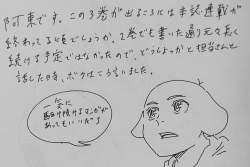 阿東です。この3巻が出るころには本誌連載が
終わってる頃でしょうか。2巻でも書いた通り元々長く
続ける予定ではなかったので、どうしよっかと担当さんと
話した時、ボクはこう言いました。
一気に
駆け抜けるマンガが
あってもいいだろ